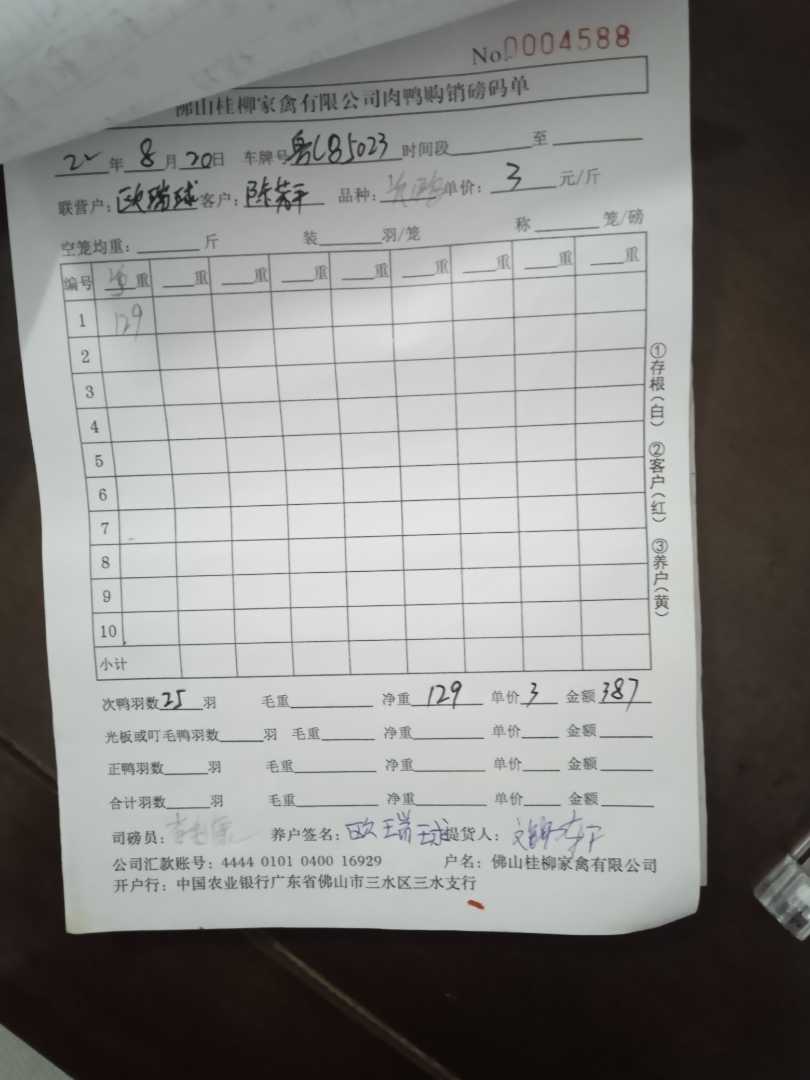 No.0004588
佛山桂柳家禽有限公司肉鸭购销磅码单
22年8月20日 车牌号粤L85023时间段 至
联营户:欧瑞球客户:陈容平 品种: 单价:3元/斤
空笼均重: 斤 装 羽/笼 称 笼/磅
编号 净重 重 重 重 重 重 重 重 重
1 129
2
3
4
5
6
7
8
9
10
小计
①存根(白) ②客户(红) ③养户(黄)
次鸭羽数25羽 毛重 净重129 单价3 金额387
光板或叮毛鸭羽数 羽 毛重 净重 单价 金额
正鸭羽数 羽 毛重 净重 单价 金额
合计羽数 羽 毛重 净重 单价 金额
司磅员: 养户签名:欧瑞球提货人:
公司汇款账号:4444 0101 0400 16929 户名:佛山桂柳家禽有限公司
开户行:中国农业银行广东省佛山市三水区三水支行